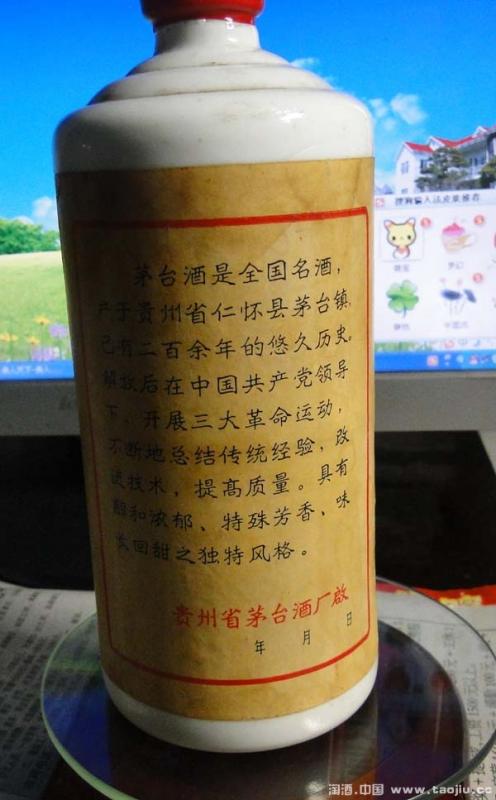 茅台酒是全国名酒，
产于贵州省仁怀县茅台镇，
已有二百余年的悠久历史。
解放后在中国共产党领导
下，开展三大革命运动，
不断地总结传统经验，改
进技术，提高质量。具有
醇和浓郁、特殊芳香、味
长回甜之独特风格。
贵州省茅台酒厂啟
年 月 日
搜狗输入法皮肤推荐
淘酒.中国 www.taojiu.cc